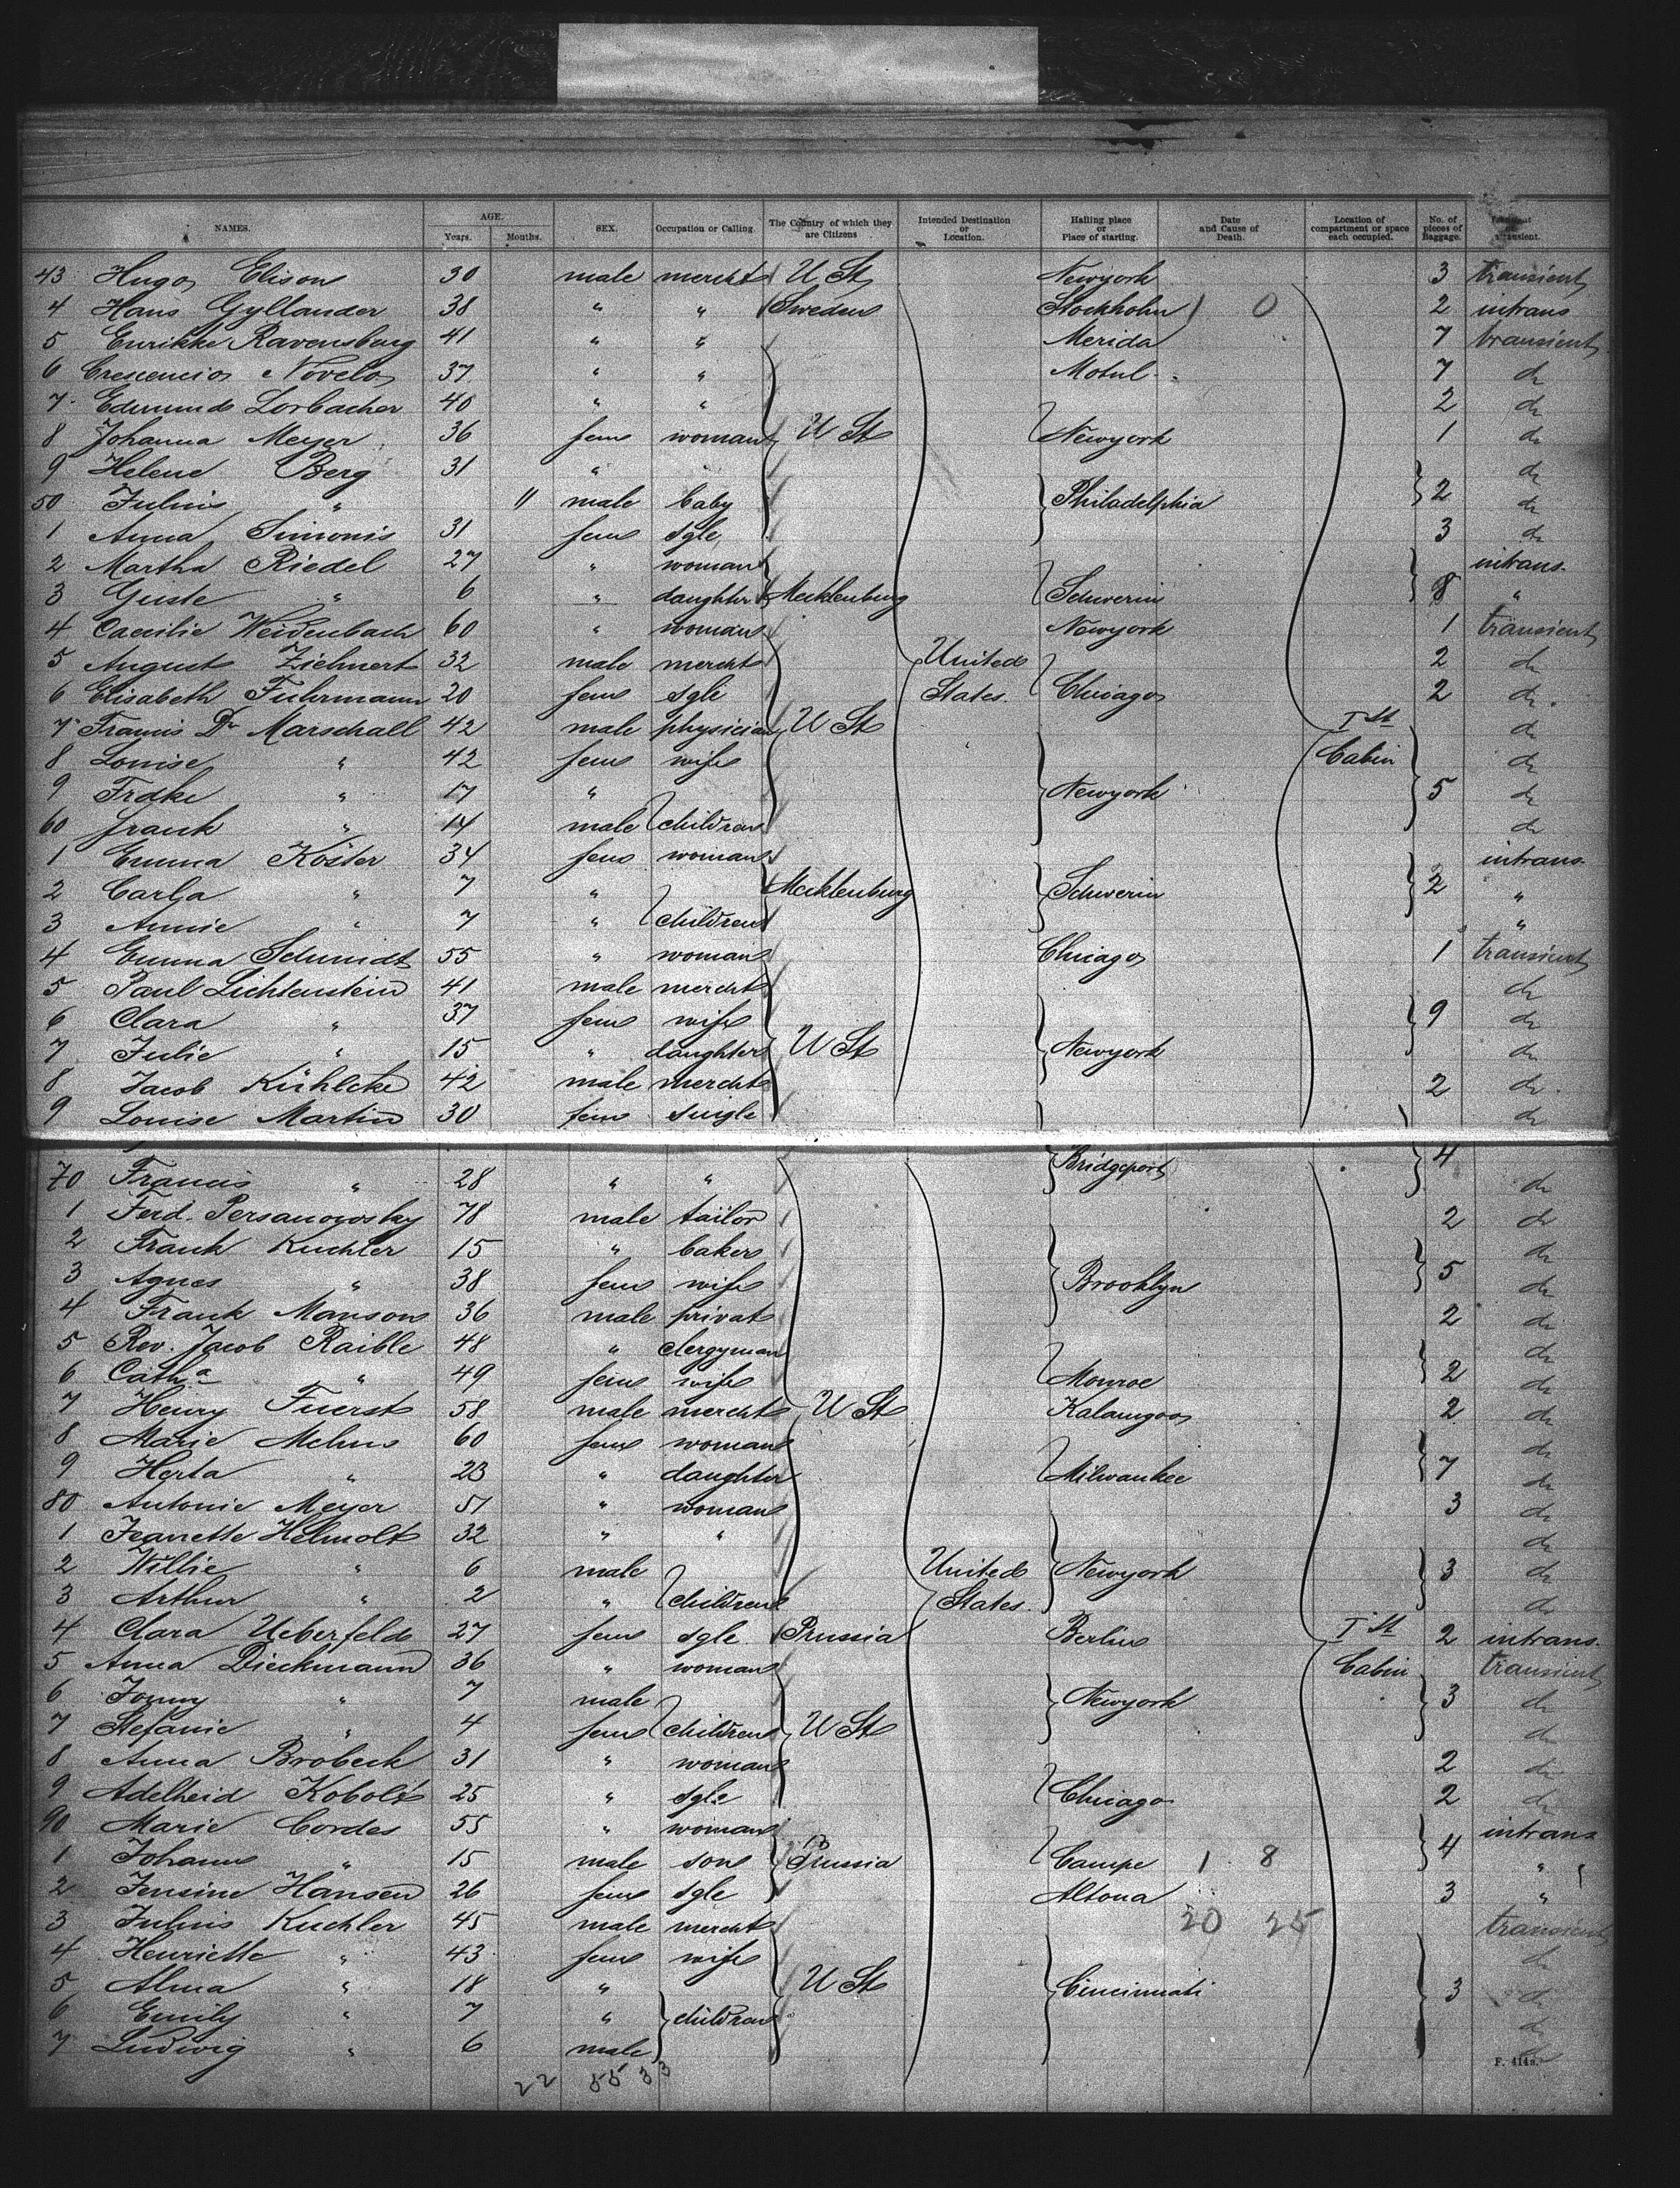 NAMES. AGE. Years. Months. SEX. Occupation or Calling. The Country of which they are Citizens Intended Destination or Location. Hailing place or Place of starting. Date and Cause of Death. Location of compartment or space each occupied. No. of pieces of Baggage.
43 Hugo Elison 30 male mercht U St Newyork 3 transient
4 Hans Gyllander 38 " " Sweden Stockholm 1 0 2 intrans
5 Enrikke Ravensburg 41 " " Merida 7 transient
6 Crescencio Novelo 37 " " Motul 7 do
7 Edmund Lorbacher 40 " " 2 do
8 Johanna Meyer 36 fem woman U St Newyork 1 do
9 Helene Berg 31 " " do
50 Julius " 11 male baby Philadelphia 2 do
1 Anna Simonis 31 fem sgle 3 do
2 Martha Riedel 27 " woman intrans.
3 Guste " 6 " daughter Mecklenburg Schwerin 8 "
4 Caecilie Weidenbach 60 " woman Newyork 1 transient
5 August Ziehnert 32 male mercht United 2 do
6 Elisabeth Fuhrmann 20 fem sgle States. Chicago 2 do
7 Francis Dr Marschall 42 male physician U St Ist do
8 Louise " 42 fem wife Cabin do
9 Frdke " 17 " Newyork 5 do
60 Frank " 14 male children do
1 Emma Köster 34 fem woman intrans.
2 Carla " 7 " Mecklenburg Schwerin 2 "
3 Annie " 7 " children "
4 Emma Schmidt 55 " woman Chicago 1 transient
5 Paul Lichtenstein 41 male mercht do
6 Clara " 37 fem wife 9 do
7 Julie " 15 " daughter U St Newyork do
8 Jacob Kühlcke 42 male mercht 2 do
9 Louise Martin 30 fem single do
70 Francis " 28 " " Bridgeport 4 do
1 Ferd. Persanowsky 78 male tailor 2 do
2 Frank Kuchler 15 " baker do
3 Agnes " 38 fem wife Brooklyn 5 do
4 Frank Manson 36 male privat 2 do
5 Rev. Jacob Raible 48 " clergyman do
6 Catha " 49 fem wife Monroe 2 do
7 Henry Fuerst 58 male mercht U St Kalamgoo 2 do
8 Marie Mehns 60 fem woman do
9 Herta " 23 " daughter Milwaukee 7 do
80 Antonie Meyer 51 " woman 3 do
1 Jeanette Helmolt 32 " " do
2 Willie " 6 male United Newyork 3 do
3 Arthur " 2 " children States. do
4 Clara Ueberfeld 27 fem sgle Prussia Berlin Ist 2 intrans.
5 Anna Dieckmann 36 " woman Cabin transient
6 Jonny " 7 male Newyork 3 do
7 Stefanie " 4 fem children U St do
8 Anna Brobeck 31 " woman 2 do
9 Adelheid Kobolt 25 " sgle Chicago 2 do
90 Marie Cordes 55 " woman intrans
1 Johann " 15 male son Prussia Campe 1 8 4 "
2 Jensine Hansen 26 fem sgle Altona 3 "
3 Julius Kuchler 45 male mercht 20 25 transient
4 Henriette " 43 fem wife do
5 Alma " 18 " U St Cincinnati 3 do
6 Emily " 7 " children do
7 Ludwig " 6 male do
22 55 33 F. 414a.